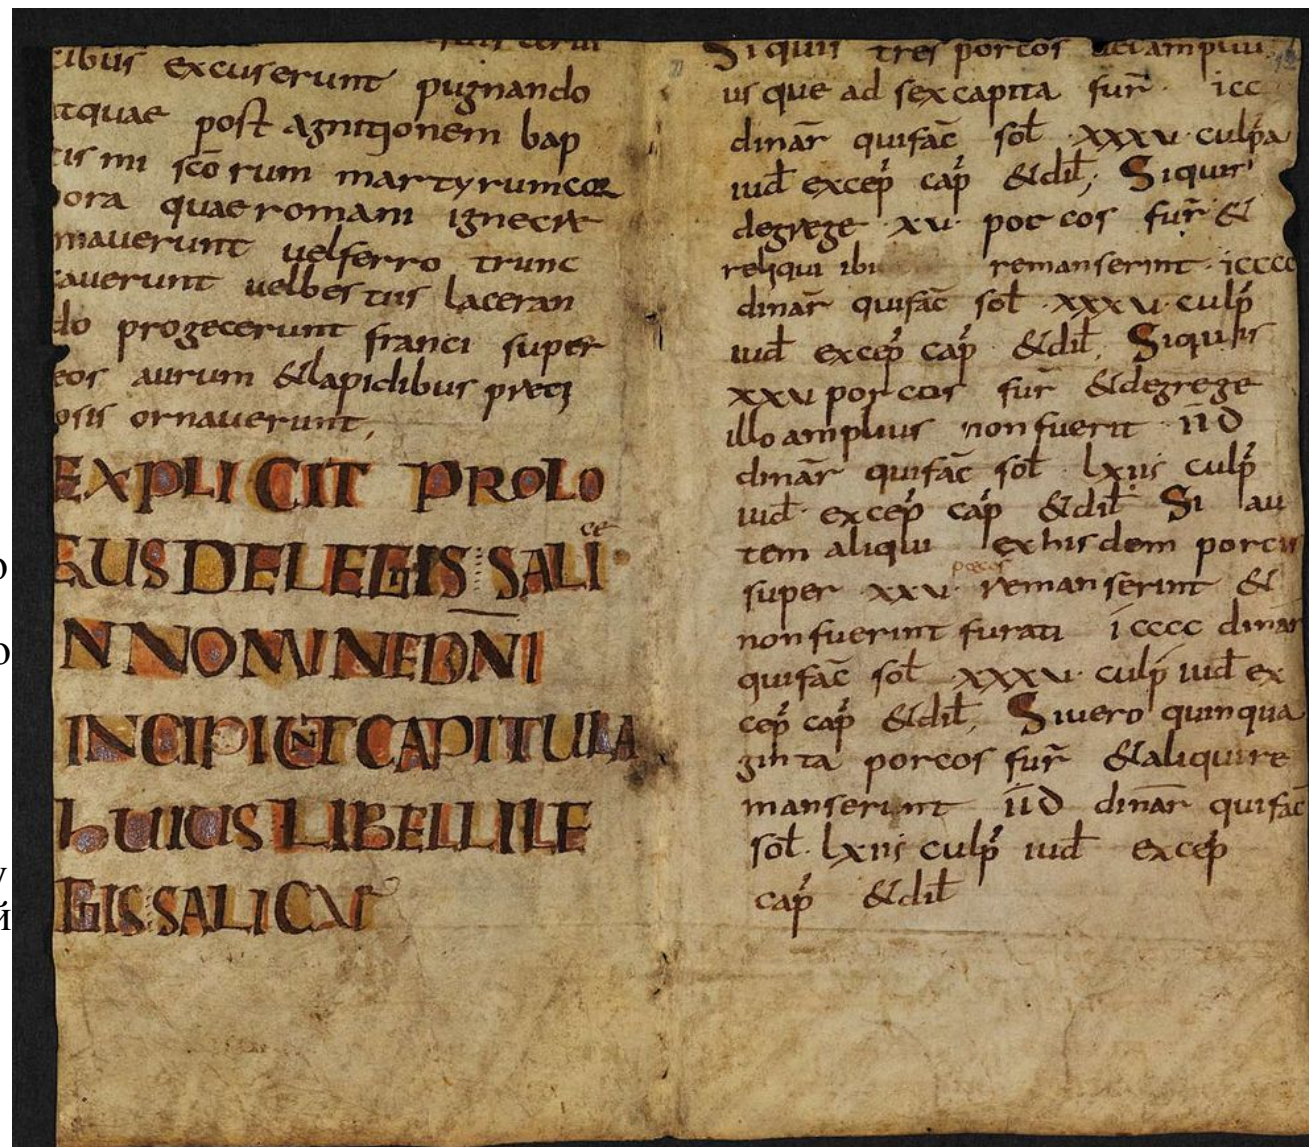 cibus excuserunt pugnando
atquae post agnitionem bap
tis mi sc̄o rum martyrum cor
pora quae romani igne cre
maverunt vel ferro trunc
caverunt vel bes tiis laceran
do progecerunt franci super
eos aurum & lapidibus preti
osis ornaverunt,
EXPLICIT PROLO
GUS DE LEGIS SALI ce
N NOMINE DN̄I
INCIPIUNT CAPITULA
hUIUS LIBELLI LE
GIS SALICAE
Si quis tres porcos vel ampliu
us que ad sex capita fur̄ · icc
dinar̄ qui fac̄ sol̄ · xxxv · culp̄a
iud̄ excep̄ cap̄ & dil̄; Si quis
de grege xv · por cos fur̄ &
reliqui ibi remanserint · icccc
dinar̄ qui fac̄ sol̄ · xxxv · culp̄
iud̄ excep̄ cap̄ & dil̄, Si quis
xxv porcos fur̄ & de grege
illo amplius non fuerit IID
dinar̄ qui fac̄ sol̄ · lxiis culp̄
iud̄ · excep̄ cap̄ & dil̄ Si au
tem aliqui ex hisdem porcis
porcos
super xxv · remanserint &
non fuerint furati icccc dinar
qui fac̄ sol̄ · xxxv · culp̄ iud̄ ex
cep̄ cap̄ & dil̄, Si vero quinqua
ginta porcos fur̄ & aliqui re
manserint IID dinar̄ qui fac̄
sol̄ · lxiis culp̄ iud̄ excep̄
cap̄ & dil̄
о
о
у
й